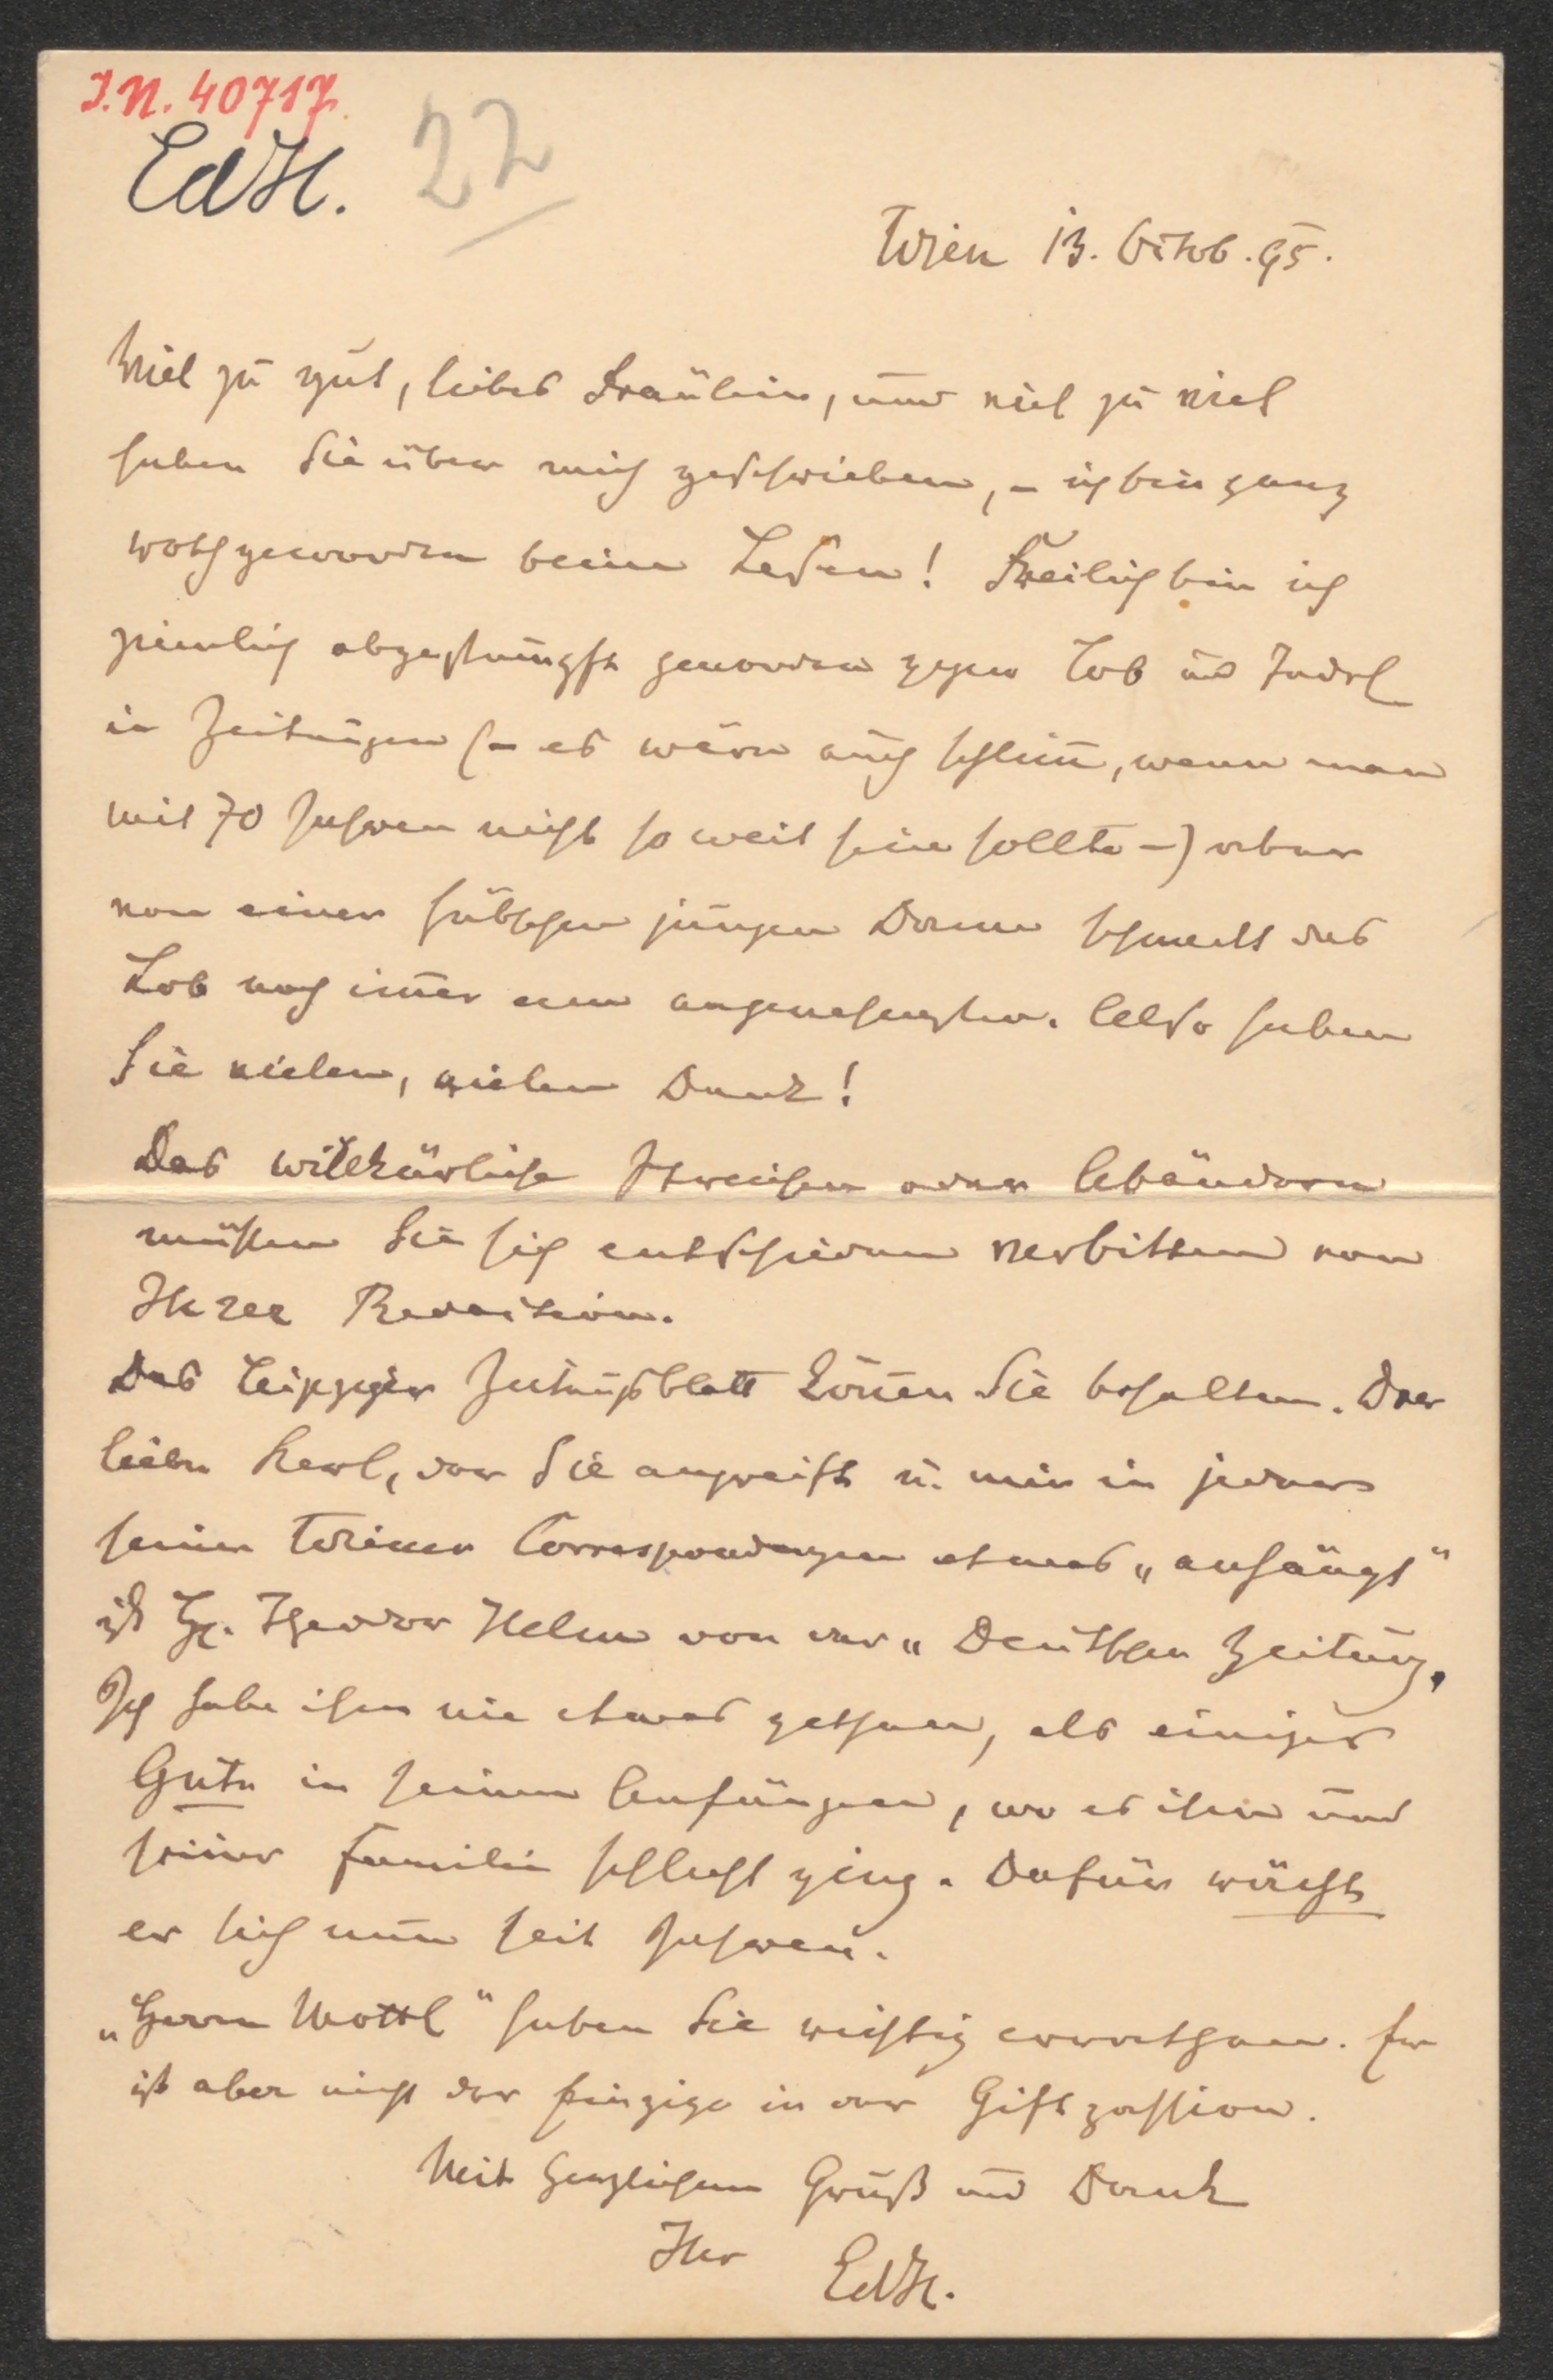 I.N. 40717.
EdH. 22
Wien 13. Octob. 95.
Viel zu gut, liebes Fräulein, und viel zu viel
haben Sie über mich geschrieben, – ich bin ganz
roth geworden beim Lesen! Freilich bin ich
ziemlich abgestumpft geworden gegen Lob und Tadel
in Zeitungen (– es wäre auch schlim̄, wenn man
mit 70 Jahren nicht so weit sein sollte –) aber
von einer hübschen jungen Dame schmeckt das
Lob noch im̄er am angenehmsten. Also haben
Sie vielen, vielen Dank!
Das willkürliche Streichen oder Abändern
müssen Sie sich entschieden verbitten von
Ihrer Redaction.
Das Leipziger Zeitungsblatt kön̄en Sie behalten. Der
liebe Kerl, der Sie angreift u. mir in jeder
seiner Wiener Correspondenzen etwas „anhängt"
ist Hr. Theodor Helm von der „Deutschen Zeitung.
Ich habe ihm nie etwas gethan, als einiges
Gute in seinen Anfängen, wo es ihm und
seiner Familie schlecht ging. Dafür rächt
er sich nun seit Jahren.
„Herrn Mottl" haben Sie richtig errathen. Er
ist aber nicht der Einzige in der Giftpassion.
Mit herzlichem Gruß und Dank
Ihr EdH.